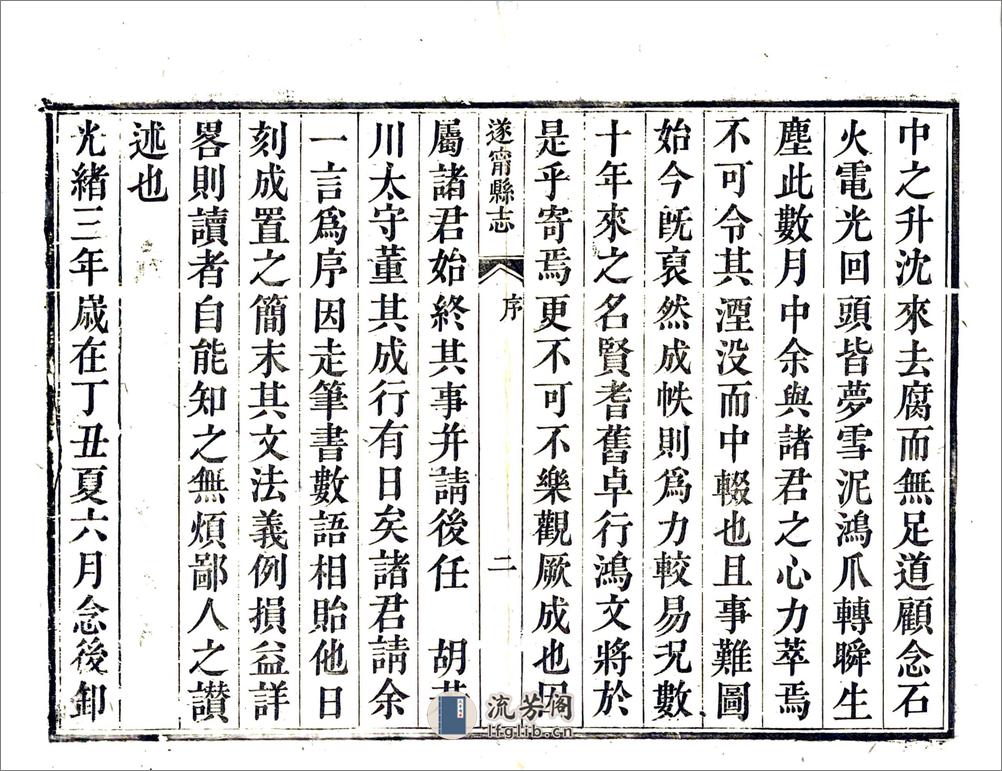 中之升沈來去腐而無足道顧念石
火電光回頭皆夢雪泥鴻爪轉瞬生
塵此數月中余與諸君之心力萃焉
不可令其湮没而中輟也且事難圖
始今既裒然成帙則爲力較易況數
十年來之名賢耆舊卓行鴻文將於
是乎寄焉更不可不樂觀厥成也因
遂甯縣志
序
二
屬諸君始終其事并請後任 胡
川太守董其成行有日矣諸君請余
一言爲序因走筆書數語相貽他日
刻成置之簡末其文法義例損益詳
畧則讀者自能知之無煩鄙人之讃
述也
光緒三年歲在丁丑夏六月念後卸
流芳阁
lfglib.cn